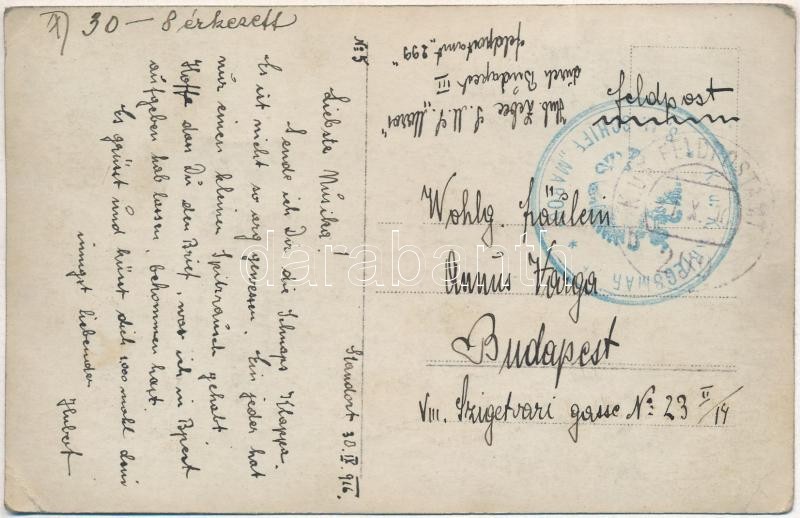 X) 30 – 8 érkezett
No 5
Standort 30. IX. 916.
Liebste Nusika!
Sende ich Dir die Schnaps Klappa.
Es ist nicht so arg gewesen. Ein jeder hat
nur einen kleinen Spitzrausch gehabt.
Hoffe das Du den Brief, was ich in Bpest
aufgeben hab lassen, bekommen hast.
Es grüsst und küsst dich 1000 mahl dein
innigst liebender
Hubert
Hub.
S.M.S. „Maros"
durch Budapest III
Feldpostamt „299"
Feldpost
K.u.K. KRIEGSMARINE
SCHIFF „MAROS"
K.u.K. FELDPOSTAMT
Wohlg. Fräulein
Annus Varga
Budapest
VIII. Szigetvari gasse No: 23 II/14
darabanth